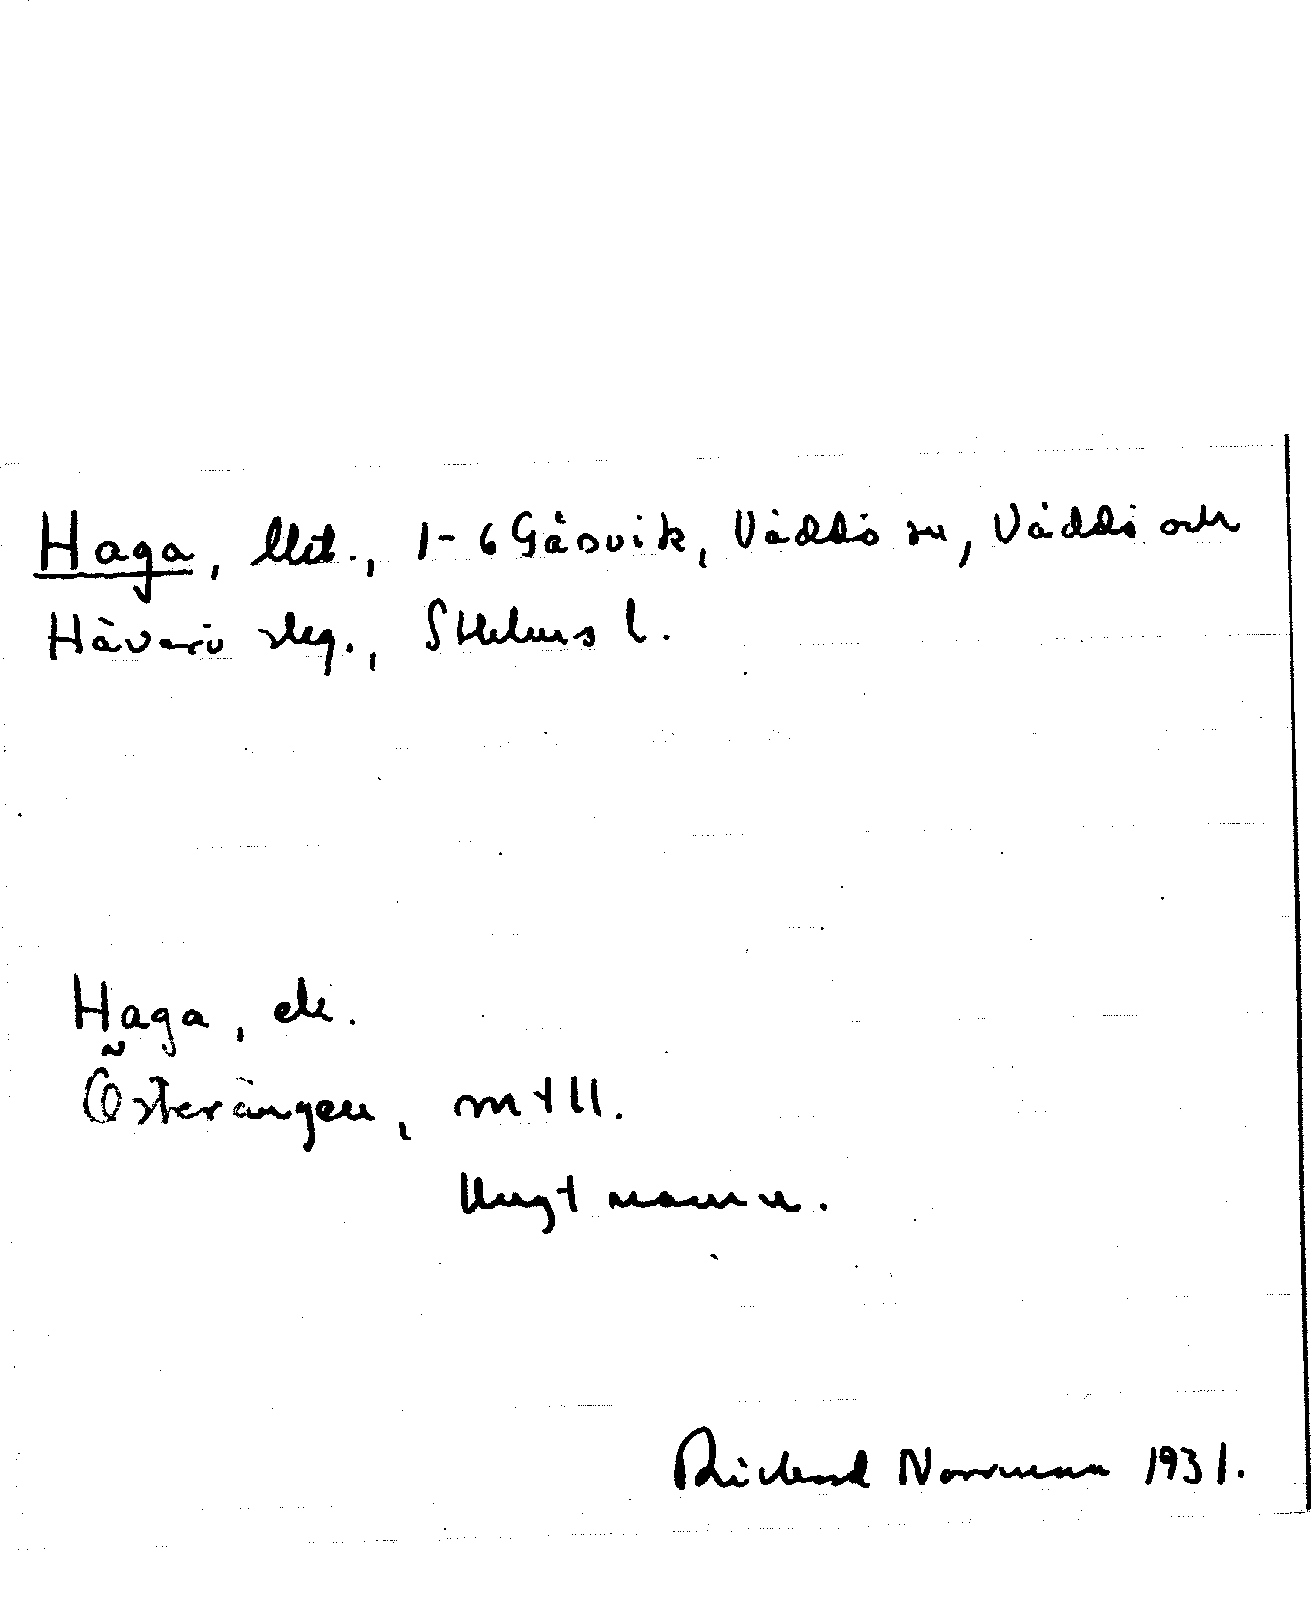 Haga, llht., 1-6 Gåsvik, Väddö sn, Väddö och
Häverö skg., Sthlms l.
Haga, ek.
Österängen, mtll.
Ungt namn.
Rickard Norrman 1931.